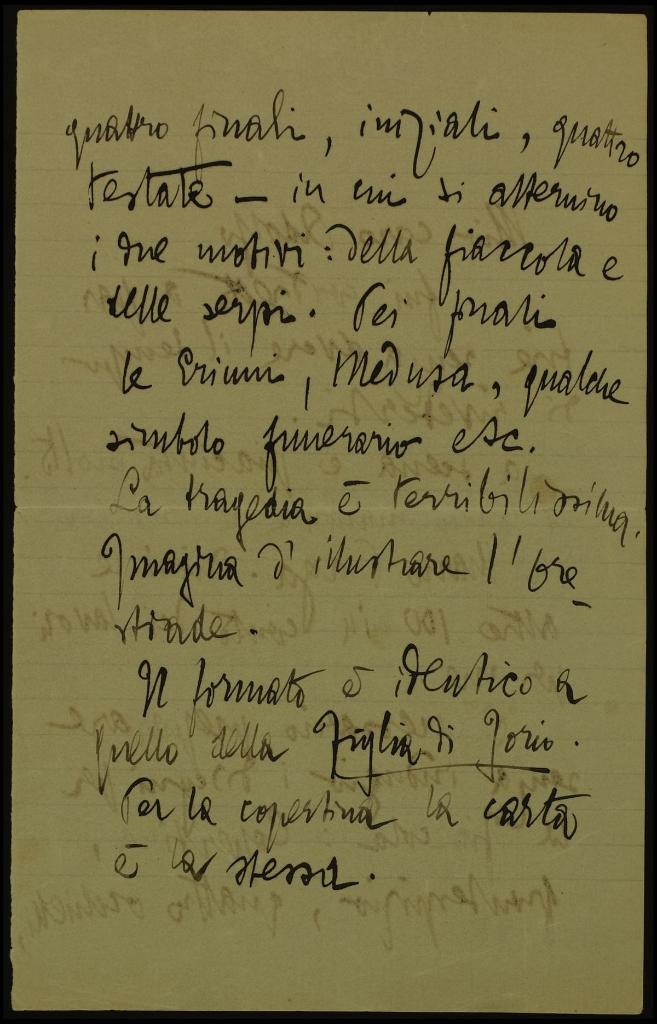 quattro finali, iniziali, quattro
testate – in cui si alternino
i due motivi: della fiaccola e
delle serpi. Pei finali
le Erinni, Medusa, qualche
simbolo funerario etc.
La tragedia è terribilissima.
Imagina d'illustrare l'Ore-
stiade.
Il formato è identico a
quello della Figlia di Jorio.
Per la copertina la carta
è la stessa.